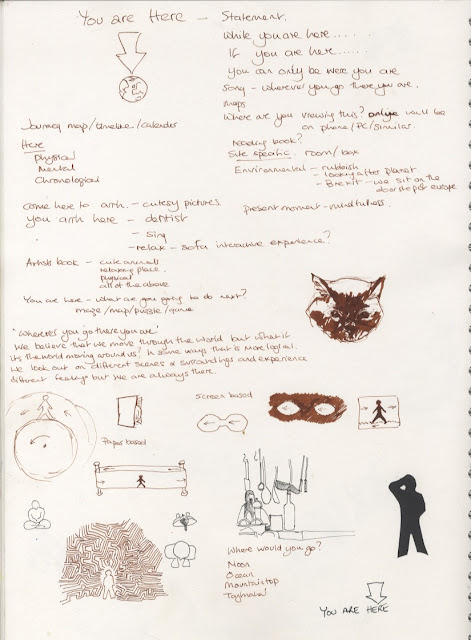 You are Here — Statement.
While you are here......
If you are here......
You can only be were you are
Song - wherever you go there you are.
maps
Where are you viewing this? online will be
on phone/PC/similar.
Reading book?
Site specific. room/box
Environmental - rubbish
- looking after planet
- Brexit - we sit on the
doorstep of europe
present moment - mindfullness.
Journey map/timeline/calender
Here
Physical
Mental
Chronological
come here to ahh. - cutesy pictures.
You ahh here - dentist
- sing
- relax - sofa interactive experience?
Artists book - cute animals
relaxing place.
physical
all of the above
You are here - what are you going to do next?
maze/map/puzzle/game
"Wherever you go there you are"
We believe that we move through the world but what if
its the world moving around us? In some ways that is more logical.
We look out on different scenes & surroundings and experience
different feelings but we are always there.
Paper based
Screen based
Where would you go?
Moon
Ocean
Mountaintop
YOU ARE HERE